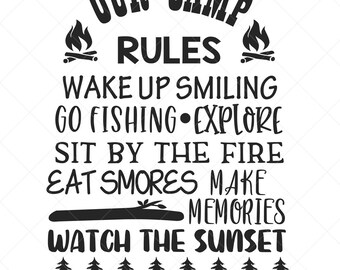 OUR CAMP
RULES
WAKE UP SMILING
GO FISHING • EXPLORE
SIT BY THE FIRE
EAT SMORES MAKE
MEMORIES
WATCH THE SUNSET